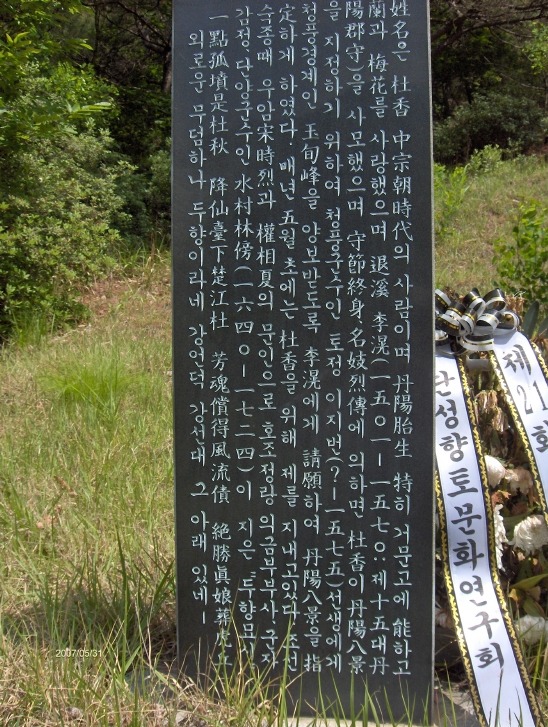 姓名은 杜香 中宗朝時代의 사람이며 丹陽胎生 特히 거문고에 能하고
蘭과 梅花를 사랑했으며 退溪 李滉(一五०一ー一五七०: 제十五대丹
陽郡守)을 사모했으며 守節終身 名妓烈傳에 의하면 杜香이 丹陽八景
을 지정하기 위하여 청풍군수인 토정 이지번(?ー一五七五)선생에게
청풍경계인 玉旬峰을 양보받도록 李滉에게 請願하여 丹陽八景을 指
定하게 하였다. 매년 五월 초에는 杜香을 위해 제를 지내고있다. 조선
숙종때 우암宋時烈과 權相夏의 문인으로 호조정랑 의금부부사, 군자
감정, 단양군수인 水村林傍(一六四०ー一七二四)이 지은 두향묘시
一點孤墳是杜秋 降仙臺下楚江杜 芳魂償得風流債 絶勝眞娘葬虎丘
외로운 무덤하나 두향이라네 강언덕 강선대 그 아래 있네ー
제21회
단성향토문화연구회
2007/05/31